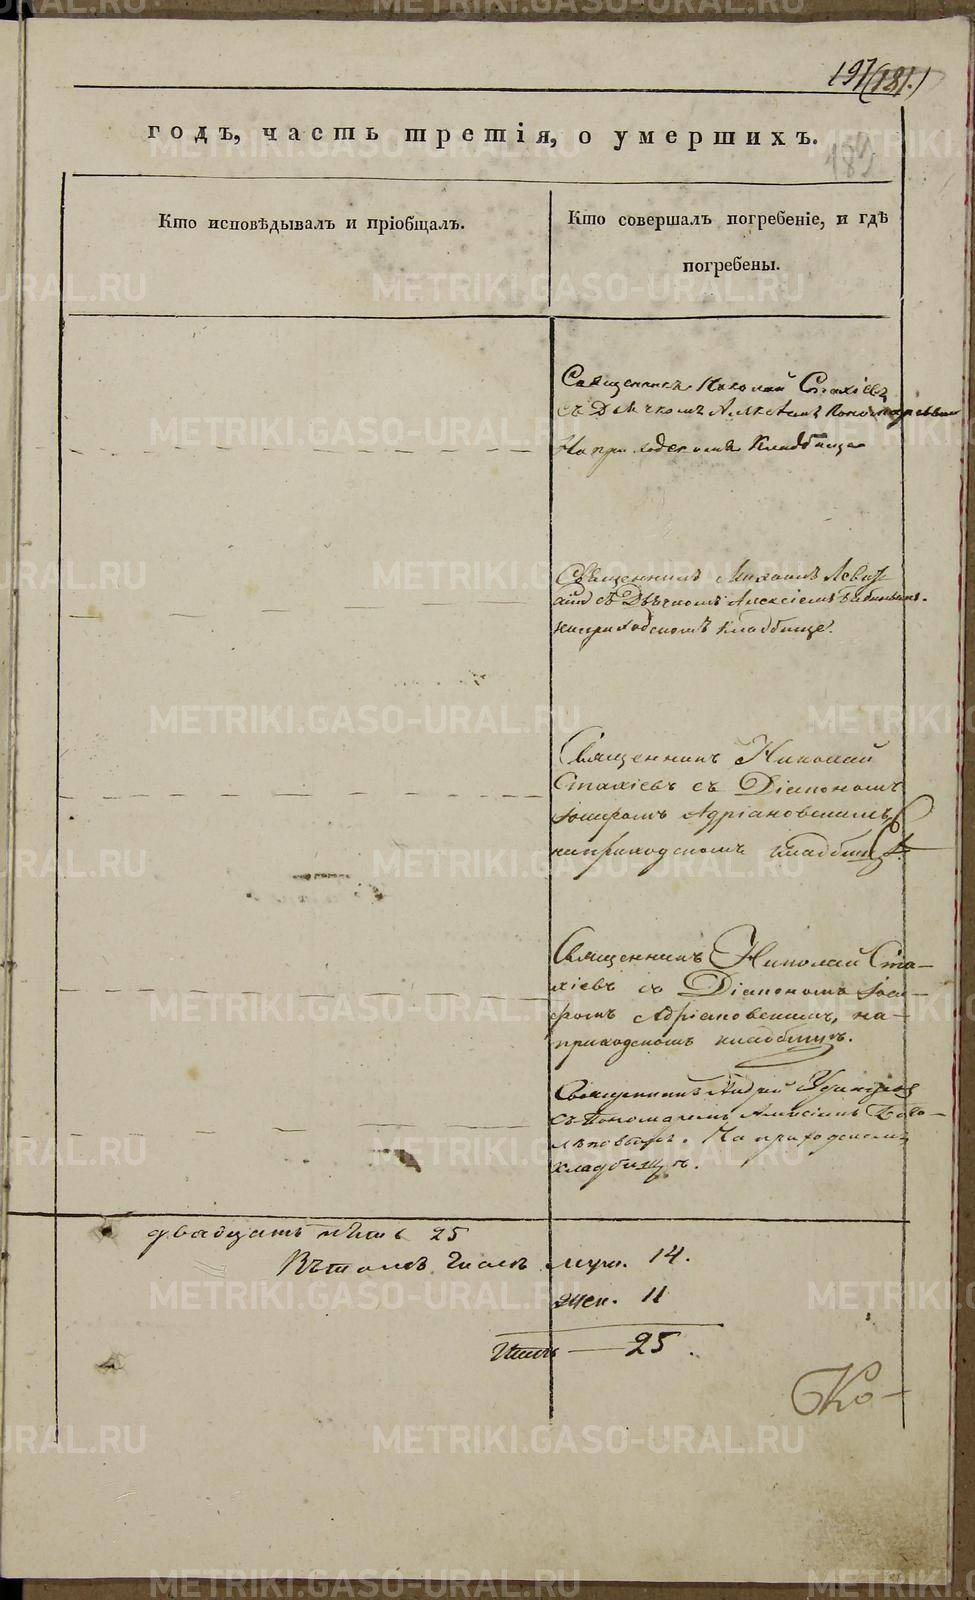 197(181.)
183
годъ, часть третія, о умершихъ.
Кто исповѣдывалъ и пріобщалъ.
Кто совершалъ погребеніе, и гдѣ
погребены.
Священникъ Николай Стахіевъ
съ Дьячкомъ Алексѣемъ
На приходскомъ Кладбище
Священникъ Михаилъ Левит
скій съ Дьячкомъ Алексіемъ
на приходскомъ кладбище.
Священникъ Николай
Стахіевъ съ Діакономъ
Іосифомъ Адріановскимъ,
на приходскомъ кладбищѣ.
Священникъ Николай Ста-
хіевъ со Діакономъ Іоси-
фомъ Адріановскимъ, на-
приходскомъ кладбищѣ.
Священникъ Андрей Удинцевъ
съ Пономаремъ Алексіемъ Бого-
лѣповымъ. На приходскомъ
кладбищѣ.
двадцать пять 25
Въ томъ числѣ муж. 14.
жен. 11
Итого — 25.
Ко-
METRIKI.GASO-URAL.RU